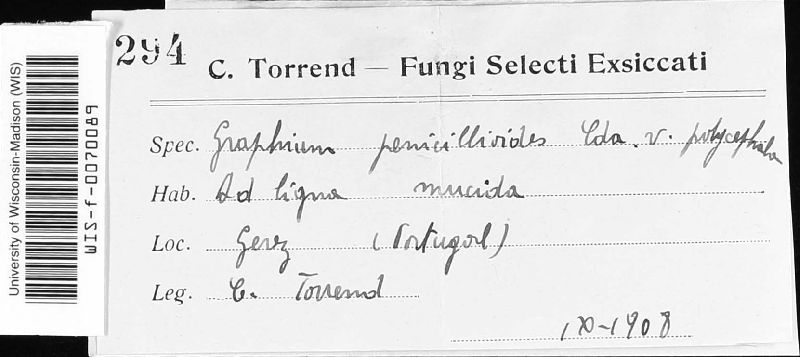 294
C. Torrend — Fungi Selecti Exsiccati
Spec. Graphium penicillioides Cda. v. polycephala
Hab. Ad ligna mucida
Loc. Gerez (Portugal)
Leg. C. Torrend
IX-1908
University of Wisconsin-Madison (WIS)
WIS-f-0070089